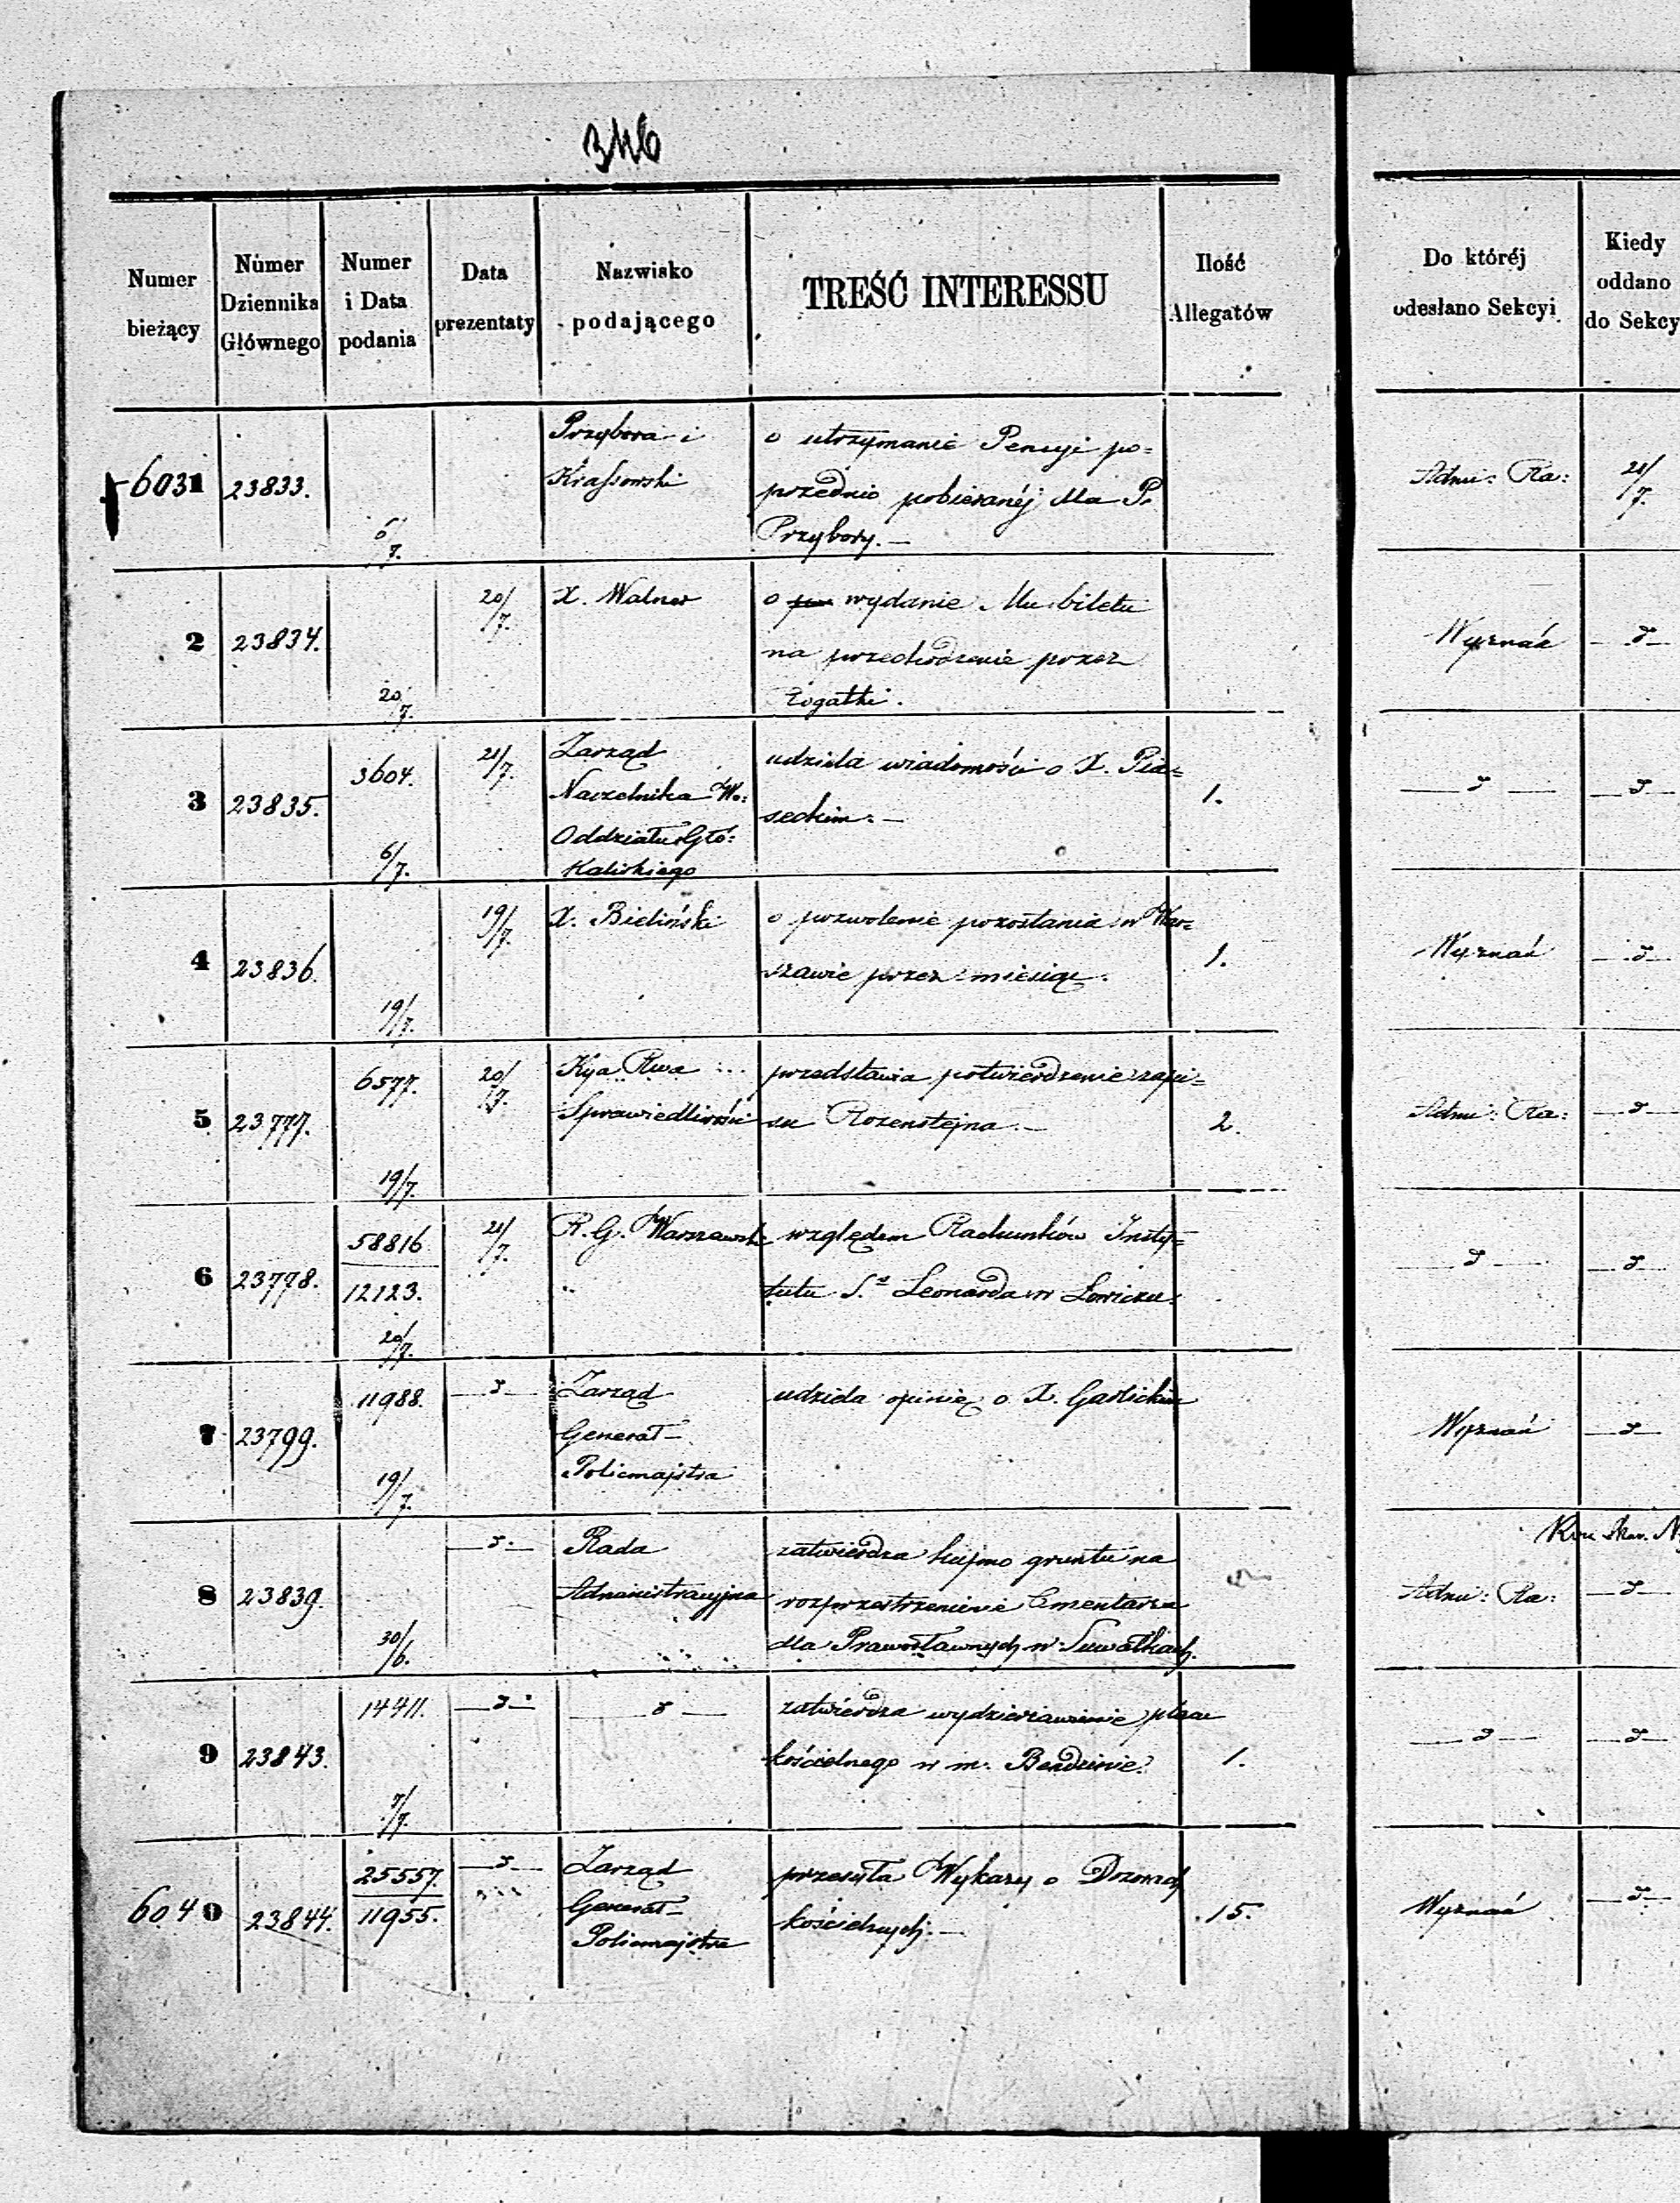 346
Numer bieżący
Numer Dziennika Głównego
Numer i Data podania
Data prezentaty
Nazwisko podającego
TREŚĆ INTERESSU
Ilość Allegatów
Do któréj odesłano Sekcyi
Kiedy oddano do Sekcy
6031 23833. 6/7.
Przybora i
Krassowski
o utrzymanie Pensyi po=
przednio pobieranéj dla P.
Przybory.—
Admi: Ra: 21/7.
2 23834. 20/7. 20/7.
X. Walner
o wydanie Mu biletu
na przechodzenie przez
rogatki.
Wyznań —d—
3 23835. 3604. 6/7. 21/7.
Zarząd
Naczelnika Wo:
Oddziału Głó:
Kaliskiego
udziela wiadomości o X. Pia=
seckim.—
1.
—d— —d—
4 23836. 19/7. 19/7.
X. Bieliński
o pozwolenie pozostania w War=
szawie przez miesiąc.
1.
Wyznań —d—
5 23777. 6577. 19/7. 20/7.
Kya Rwa
Sprawiedliwości
przedstawia potwierdzenie zapi=
su Rozenstejna.—
2.
Admi: Ra: —d—
6 23778. 58816 12123. 20/7. 21/7.
R. G. Warszawski
względem Rachunków Insty=
tutu S. Leonarda w Łowiczu.
—d— —d—
7 23799. 11988. 19/7. —d—
Zarząd
Generał—
Policmajstra
udziela opinię o X. Garlickim
Wyznań —d—
8 23839. 30/6. —d—
Rada
Administracyjna
zatwierdza kupno gruntu na
rozprzestrzenienie Cmentarza
dla Prawosławnych w Suwałkach.
Admi: Ra: —d—
9 23843. 14411. 7/7. —d—
—d—
zatwierdza wydzierżawienie placu
kościelnego w m. Bendzinie.
1.
—d— —d—
6040 23844. 25557. 11955. —d—
Zarząd
Generał—
Policmajstra
przesyła Wykazy o Dozorach
kościelnych.—
15.
Wyznań —d—